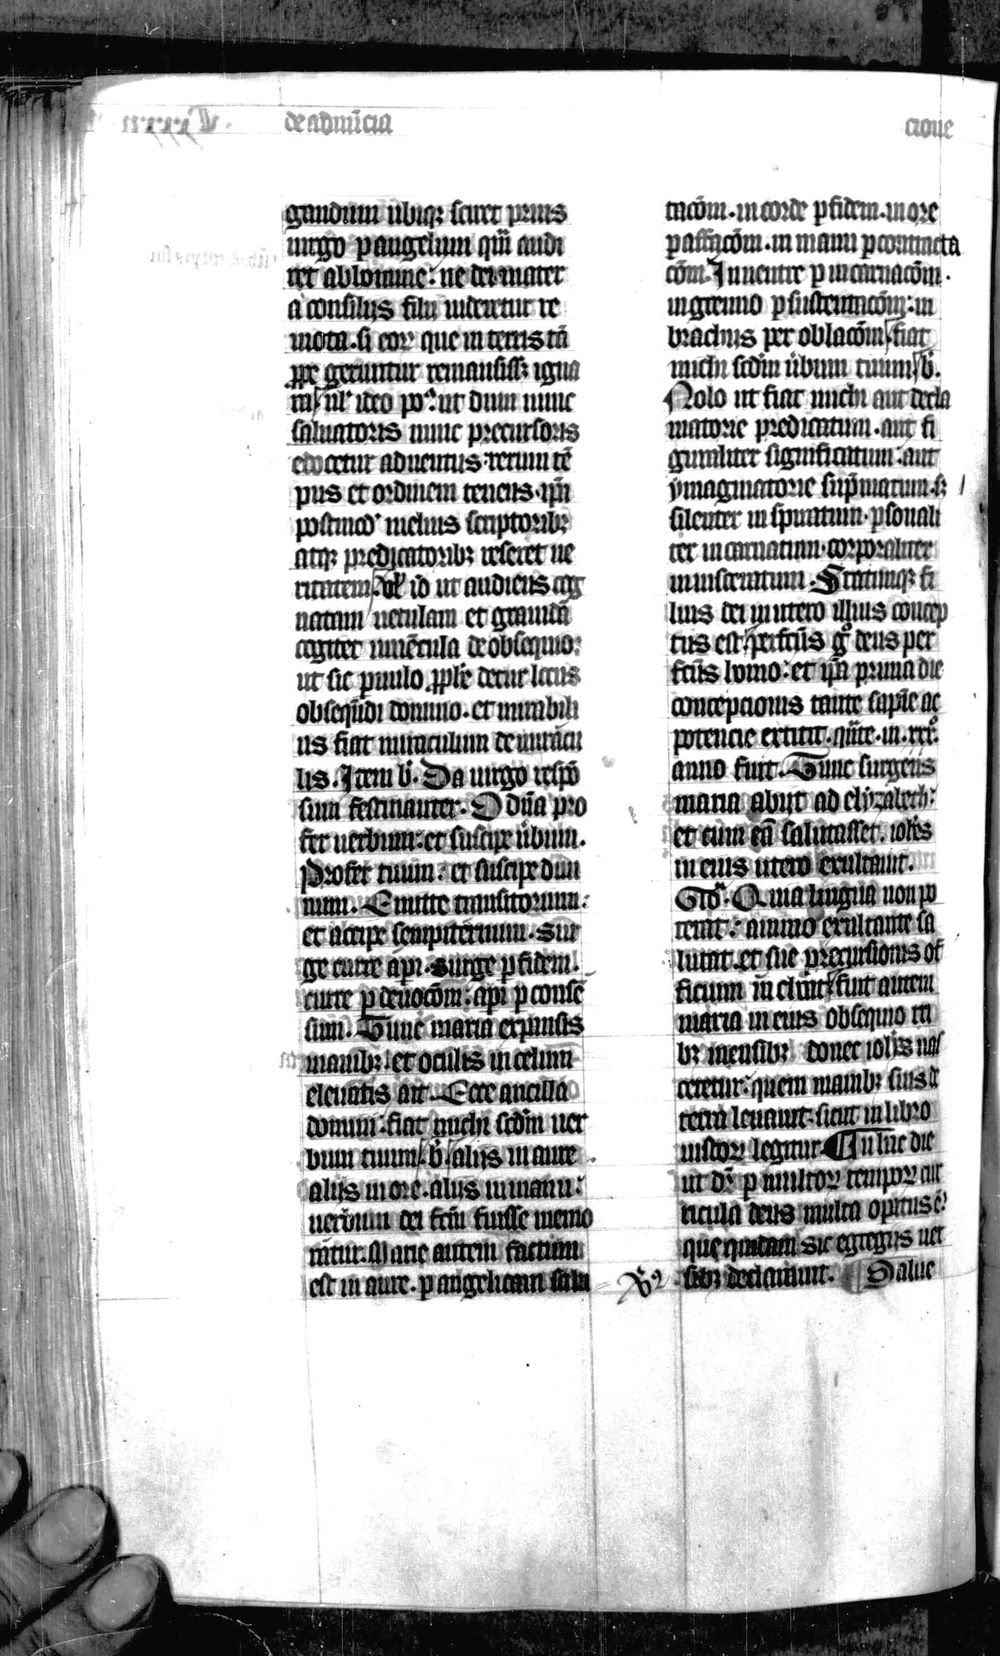 de adnūcia
cione
gaudium ubiqꝫ sciret prius
uirgo ꝑ angelum qͫ audi
ret ab homine: ne dei mater
a consiliis filii uideretur re
mota. si eoꝝ que in terris tā
ꝓpe geruntur remansissꝫ igna
ra ul̕ ideo poᶜ. ut dum nunc
saluatoris nunc precursoris
edocetur aduentus. rerum tē
pus et ordinem tenens. ip̄i
postmod̕ melius scriptoribꝫ
atqꝫ predicatoribꝫ reseret ue
ritatem. Ul̕ id ut audiens cog
natam uetulam et grauidā
cogitet iuuēcula de obsequio:
ut sic paruulo ꝓph̄e detur locus
obseq̄ndi domino. et mirabili
us fiat miraculum de miracu
lis. Item b̄. Da uirgo respō
sum festinanter. O dn̄a pro
fer uerbum: et suscipe ūbum.
Profer tuum: et suscipe diui
num. Emitte transitorium:
et accipe sempiternum. Sur
ge curre api. Surge ꝑ fidem.
curre ꝑ deuocōm: api ꝑ consē
sum. Tunc maria expansis
manibꝫ et oculis in celum
eleuatis ait. Ecce ancilla
domini: fiat michi scd̄m uer
bum tuum. b̄. aliis in aure
aliis in ore. aliis in manu:
uerbum dei fcm̄ fuisse memo
rātur. Marie autem factum
est in aure. ꝑ angelicam salu
tacōm. in corde ꝑ fidem. in ore
ꝑ assacōm. in manu ꝑ contracta
cōm. In uentre ꝑ incarnacōm.
in gremio ꝑ sustentacōm: in
brachiis per oblacōm fiat
michi scd̄m ūbum tuum b̄.
Nolo ut fiat michi aut decla
matorie predicatum. aut fi
guraliter significatum: aut
ymaginatorie sup̄matum. sꝫ
silenter inspiratum. ꝑsonali
ter incarnatum. corporaliter
inuisceratum. Statimqꝫ fi
lius dei in utero illius concep
tus est. perfctus gͦ deus per
fcūs homo: et ip̄a prima die
concepcionis tante sapīe ac
potencie extitit. qn̄te. in. xxxͦ.
anno fuit. Tunc surgens
maria abiit ad elyzabeth:
et cum eā salutasset. ioh̄es
in eius utero exultauit.
Glō. Quia lingua non po
terat: animo exultante sa
lutat. et sue precursionis of
ficium fuit autem
maria in eius obsequio tri
bꝫ mensibꝫ donec ioh̄es nas
ceretur: quem manibꝫ suis de
terra leuauit. sicut in libro
iustoꝝ legitur. In hac die
ut dr̄ ꝑ multoꝝ tempoꝝ cur
ricula deus multa opatus ē:
que quidam sic egregiis uer
sibꝫ declarauit. Salue